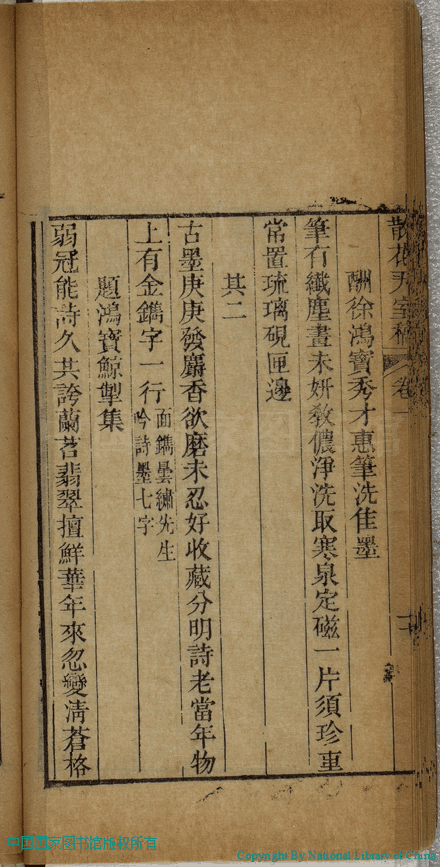 散花天室稿 卷一
酬徐鴻寶秀才惠筆洗佳墨
筆有纖塵畫未妍教儂淨洗取寒泉定磁一片須珍重
常置琉璃硯匣邊
其二
古墨庚庚發麝香欲磨未忍好收藏分明詩老當年物
上有金鐫字一行面鐫曇繡先生吟詩墨七字
題鴻寶鯨掣集
弱冠能詩久共誇蘭苕翡翠擅鮮華年來忽變清蒼格
中国国家图书馆版权所有
Copyright By National Library of China